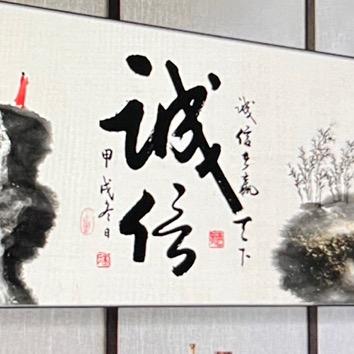 诚信
诚信者赢天下
甲戌冬日